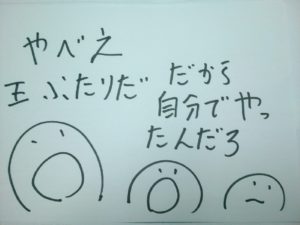 やべえ
王ふたりだ
だから
自分でやっ
たんだろ